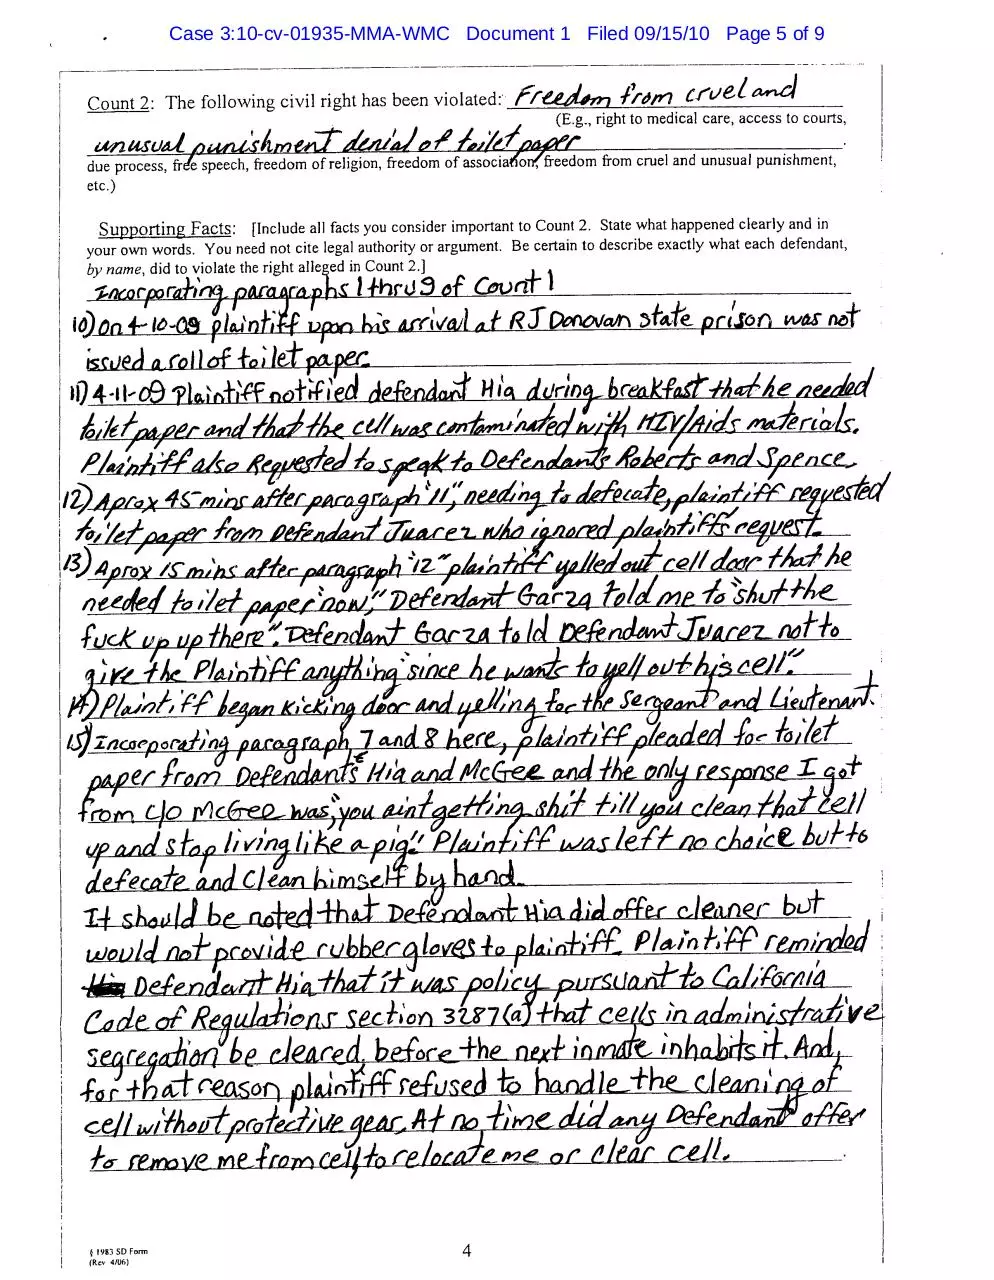 Case 3:10-cv-01935-MMA-WMC Document 1 Filed 09/15/10 Page 5 of 9
Count 2: The following civil right has been violated: Freedom from cruel and
(E.g., right to medical care, access to courts,
unusual punishment denial of toilet paper
due process, free speech, freedom of religion, freedom of association, freedom from cruel and unusual punishment,
etc.)
Supporting Facts: [Include all facts you consider important to Count 2. State what happened clearly and in
your own words. You need not cite legal authority or argument. Be certain to describe exactly what each defendant,
by name, did to violate the right alleged in Count 2.]
Incorporating paragraphs 1 thru 9 of Count 1
10) On 4-10-09 plaintiff upon his arrival at RJ Donovan state prison was not
issued a roll of toilet paper.
11) 4-11-09 Plaintiff notified defendant Hia during breakfast that he needed
toilet paper and that the cell was contaminated with HIV/Aids materials.
Plaintiff also Requested to speak to Defendants Roberts and Spence.
12) Aprox 45 mins after paragraph "11", needing to defecate, plaintiff requested
toilet paper from Defendant Juarez who ignored plaintiff's request.
13) Aprox 15 mins after paragraph "12" plaintiff yelled out cell door that he
needed toilet paper "now," Defendant Garza told me to "shut the
fuck up up there". Defendant Garza told Defendant Juarez not to
give the Plaintiff anything "since he wants to yell out his cell."
14) Plaintiff began kicking door and yelling for the Sergeant and Lieutenant.
15) Incorporating paragraph 7 and 8 here, plaintiff pleaded for toilet
paper from Defendants Hia and McGee and the only response I got
from C/O McGee was, "you aint getting shit till you clean that cell
up and stop living like a pig." Plaintiff was left no choice but to
defecate and Clean himself by hand.
It should be noted that Defendant Hia did offer cleaner but
would not provide rubber gloves to plaintiff. Plaintiff reminded
Defendant Hia that it was policy pursuant to California
Code of Regulations section 3287(a) that cells in administrative
segregation be cleared, before the next inmate inhabits it. And,
for that reason plaintiff refused to handle the cleaning of
cell without protective gear. At no time did any Defendant offer
to remove me from cell, to relocate me or clear cell.
§ 1983 SD Form
(Rev 4/06)
4